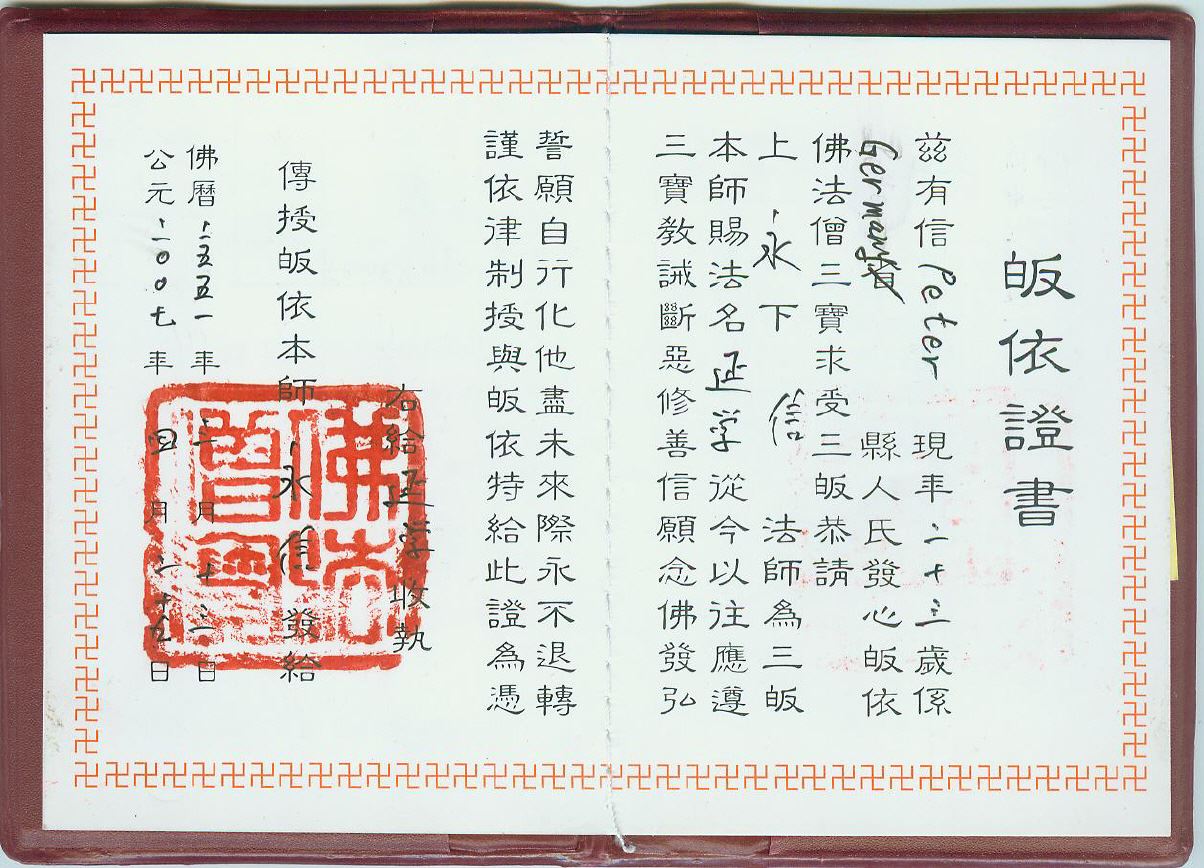 皈依證書
兹有信Peter 現年二十三歲係
Germany省 縣人氏發心皈依
佛法僧三寶求受三皈恭請
上永下信 法師為三皈
本師賜法名延学從今以往應遵
三寶教誡斷惡修善信願念佛發弘
誓願自行化他盡未來際永不退轉
謹依律制授與皈依特給此證為憑
右給延学收執
傳授皈依本師永信發給
佛曆二五五一年三月十三日
公元二00七年四月二十九日